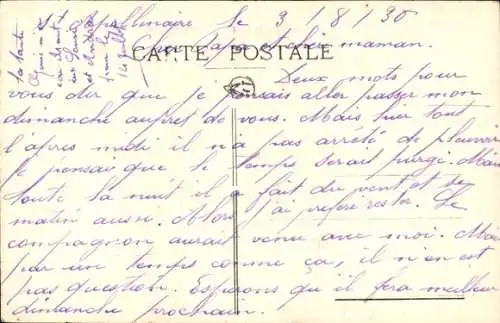 St Apollinaire le 3/8/30
CARTE POSTALE
Cher Papa et chère maman.
Deux mots pour
vous dir que je pensais aller passer mon
dimanche aupret de vous. Mais hier tout
l'après midi il n'a pas arrêté de pleuvoir
je pensais que le temps serait purgé. Mais
toute la nuit il a fait du vent et ce
matin aussi. Alors j'ai préféré rester. Le
compagnon aurait venu avec moi. Mais
par un temps comme ça, il n'en est
pas question. Esperons qu'il fera meilleur
dimanche prochain.
La tante